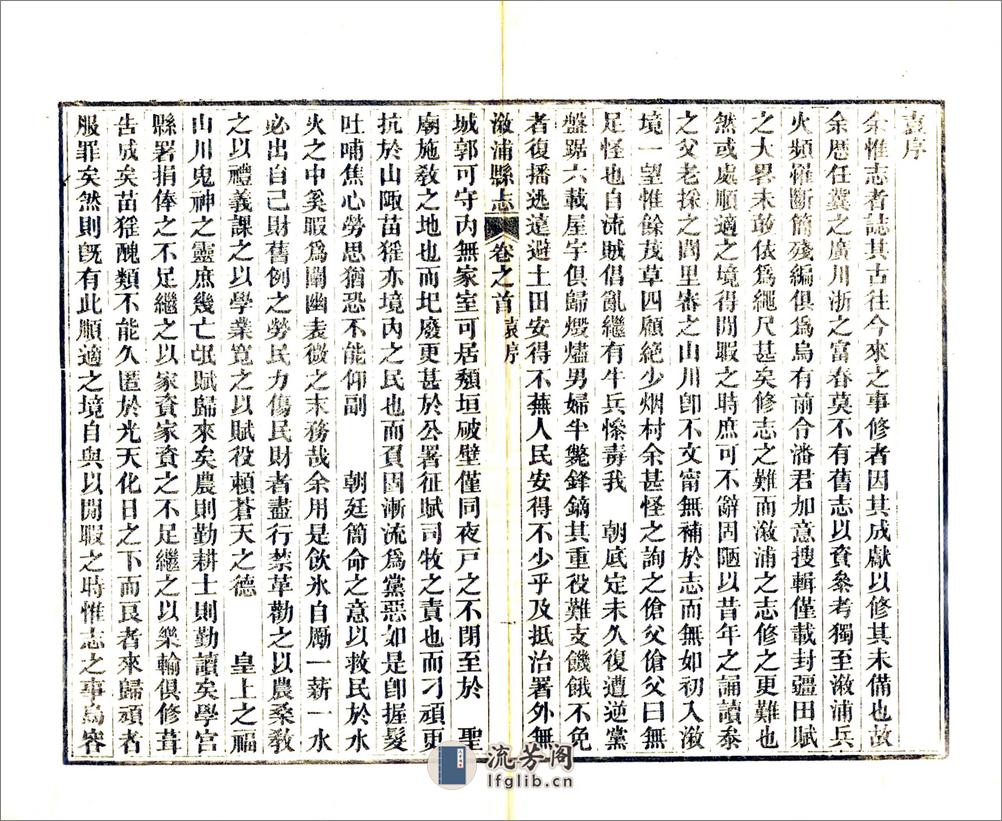 袁序
余惟志者誌其古往今來之事修者因其成獻以修其未備也故
余歷任冀之廣川浙之富春莫不有舊志以資參考獨至漵浦兵
火頻罹斷簡殘編俱爲烏有前令潘君加意搜輯僅載封疆田賦
之大畧未敢依爲繩尺甚矣修志之難而漵浦之志修之更難也
然或處順適之境得閒暇之時庶可不辭固陋以昔年之誦讀黍
之父老採之閭里審之山川卽不文甯無補於志而無如初入漵
境一望惟餘茂草四顧絕少烟村余甚怪之詢之傖父傖父曰無
足怪也自流賊倡亂繼有牛兵慘毒我 朝底定未久復遭逆黨
盤踞六載屋宇俱歸燬燼男婦半斃鋒鏑其重役難支饑餓不免
者復播逃遠避土田安得不蕪人民安得不少乎及抵治署外無
漵浦縣志 卷之首 袁序
城郭可守內無家室可居頽垣破壁僅同夜戸之不閉至於 聖
廟施敎之地也而圮廢更甚於公署征賦司牧之責也而刁頑更
抗於山陬苗猺亦境內之民也而頁固漸流爲黨惡如是卽握髮
吐哺焦心勞思猶恐不能仰副 朝廷簡命之意以救民於水
火之中奚暇爲闡幽表微之末務哉余用是飲氷自勵一薪一水
必出自己財舊例之勞民力傷民財者盡行禁革勸之以農桑敎
之以禮義課之以學業寬之以賦役頼蒼天之德 皇上之福
山川鬼神之靈庶幾亡氓賦歸來矣農則勤耕士則勤讀矣學宫
縣署捐俸之不足繼之以家資家資之不足繼之以樂輸俱修葺
告成矣苗猺醜類不能久匿於光天化日之下而良者來歸頑者
服罪矣然則旣有此順適之境自與以閒暇之時惟志之事烏容
流芳阁
lfglib.cn